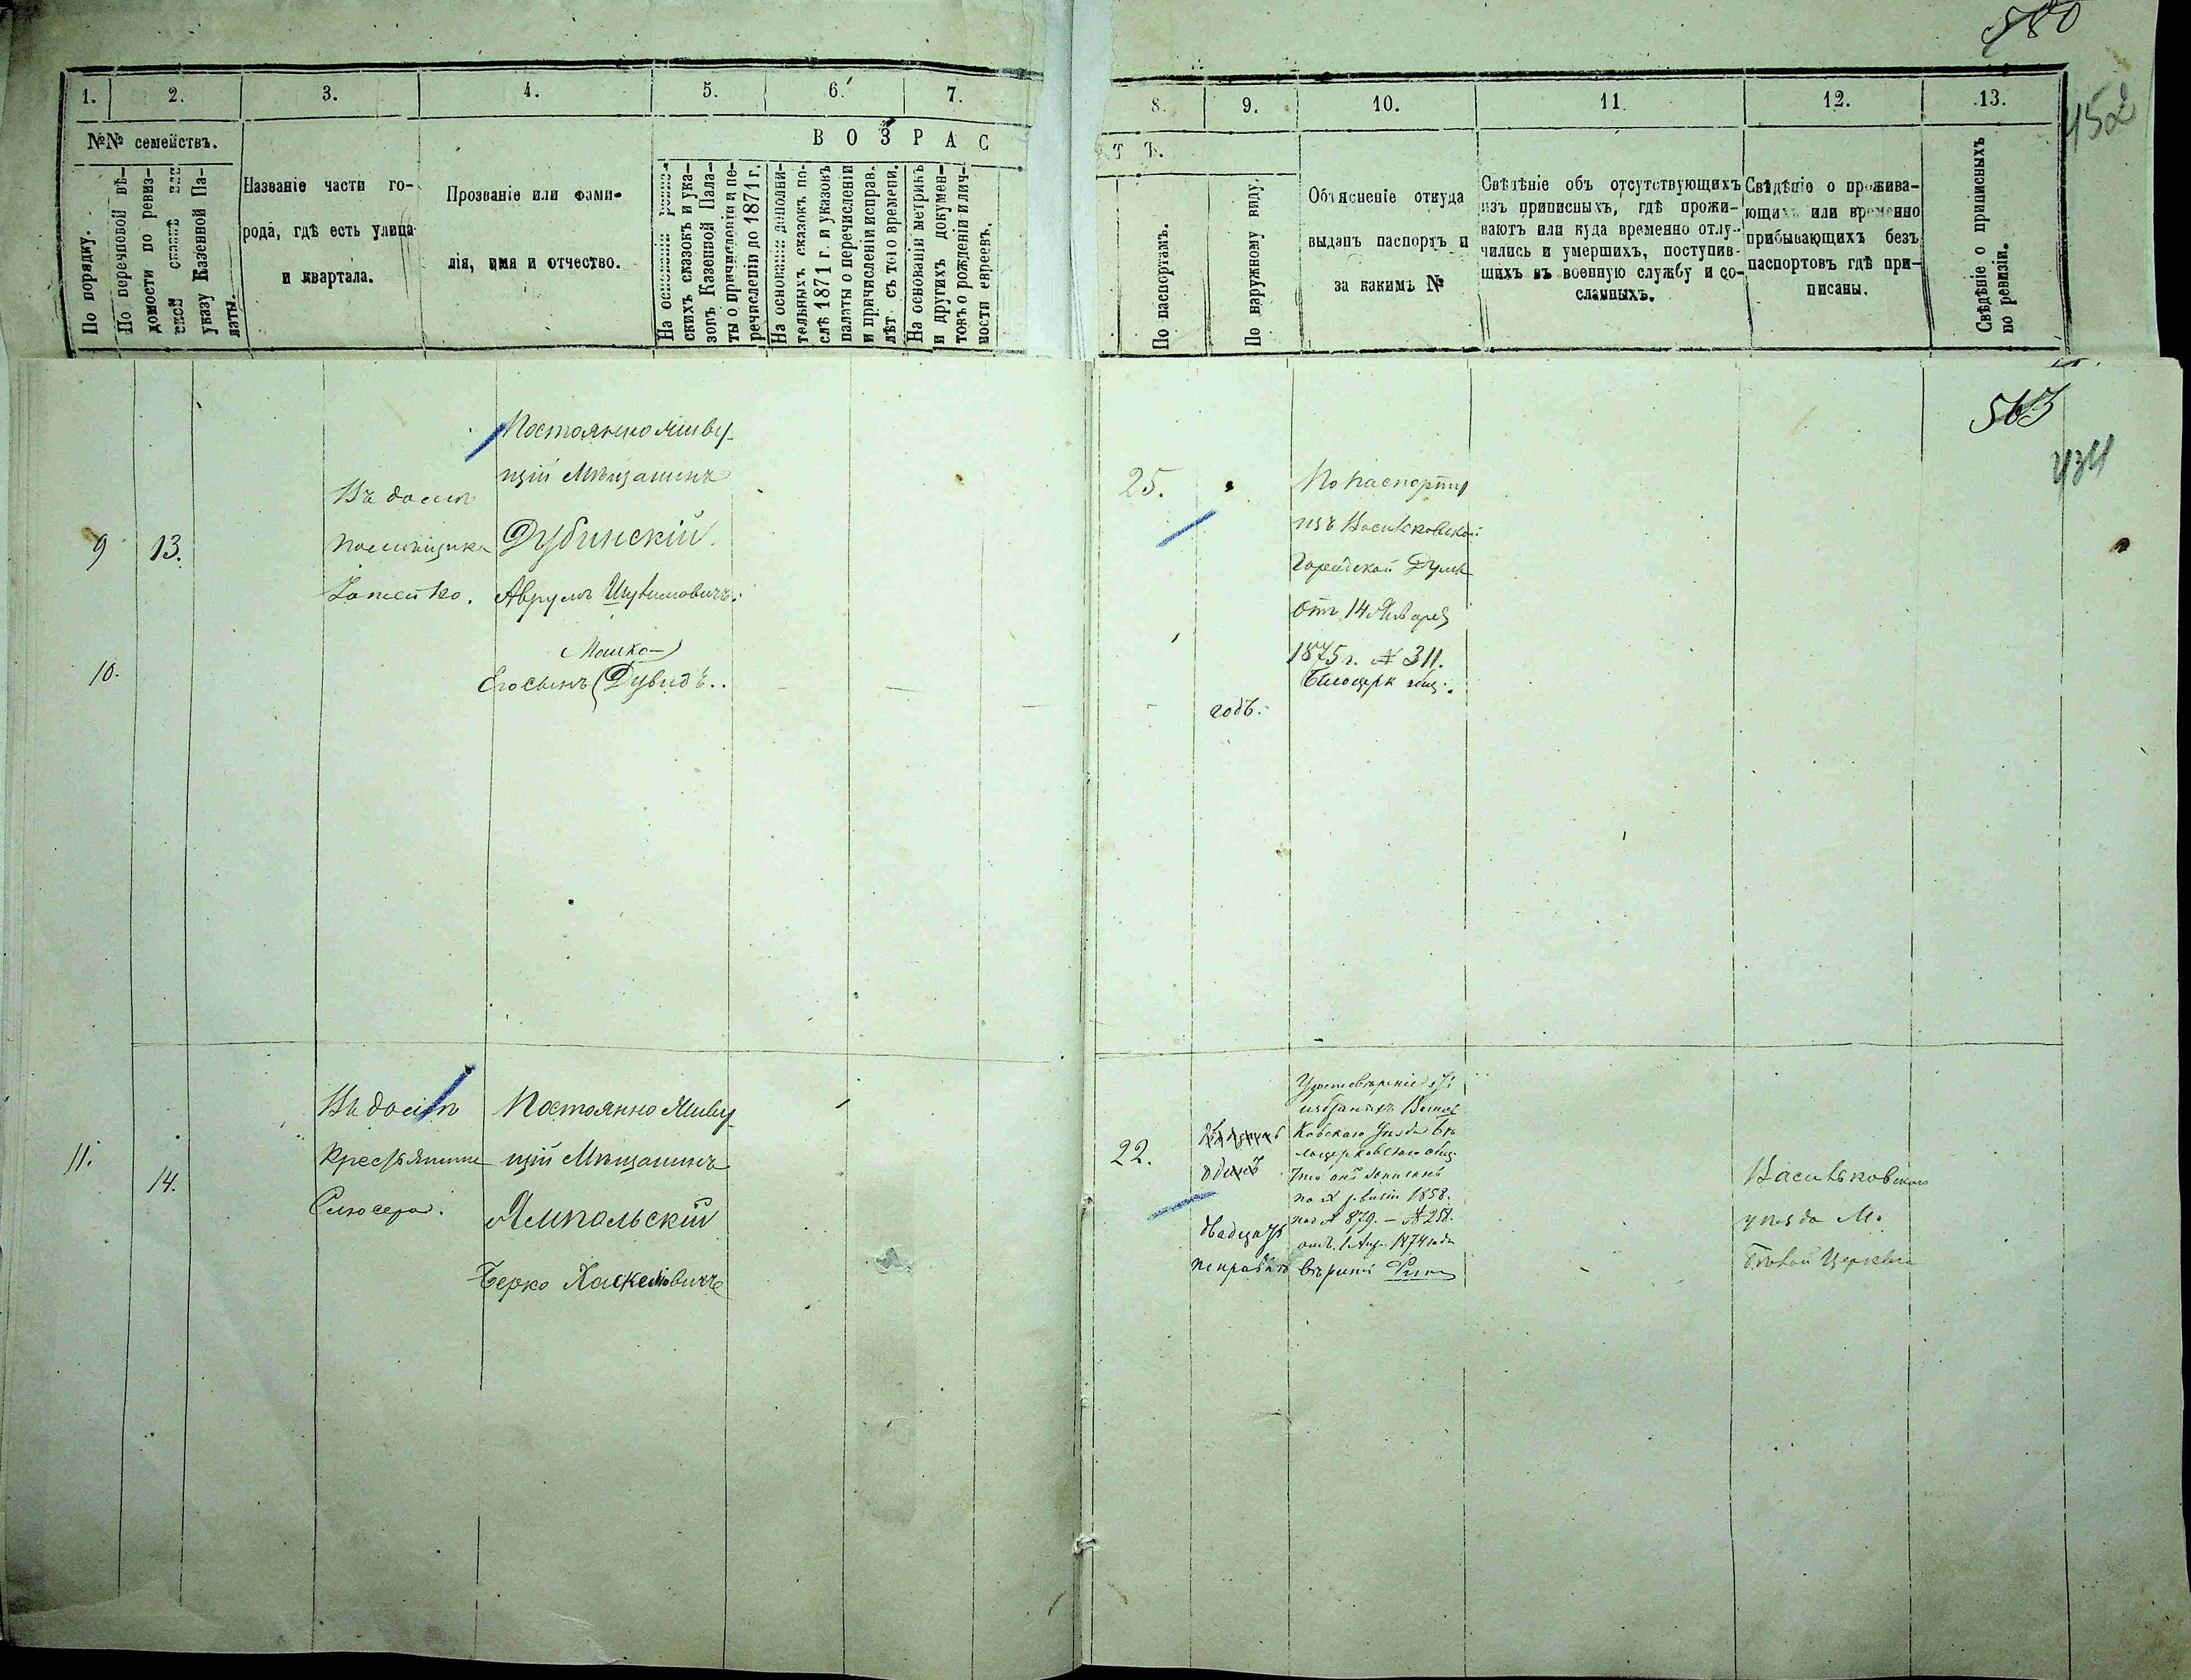 580
452
1. 2. 3. 4. 5. 6. 7. 8. 9. 10. 11. 12. 13.
№№ семействъ.
По порядку.
По перечневой вѣ-
домости по ревиз-
ской сказкѣ или
указу Казенной Па-
латы.
Названіе части го-
рода, гдѣ есть улица
и квартала.
Прозваніе или фами-
лія, имя и отчество.
ВОЗРАС
ТЪ.
На основаніи
скихъ сказокъ и ука-
зовъ Казенной Пала-
ты о причисленіи и пе-
речисленіи до 1871 г.
На основаніи дополни-
тельныхъ сказокъ по-
слѣ 1871 г. и указовъ
палаты о перечисленіи
и причисленіи исправ.
лѣт съ того времени.
На основаніи метрикъ
и другихъ докумен-
товъ о рожденіи и лич-
ности евреевъ.
По паспортамъ.
По наружному виду.
Объясненіе откуда
выданъ паспортъ и
за какимъ №
Свѣдѣніе объ отсутствующихъ
изъ приписныхъ, гдѣ прожи-
ваютъ или куда временно отлу-
чились и умершихъ, поступив-
шихъ въ военную службу и со-
сланныхъ.
Свѣдѣніе о прожива-
ющихъ или временно
прибывающихъ безъ
паспортовъ гдѣ при-
писаны.
Свѣдѣніе о приписныхъ
по ревизіи.
563
434
9 13.
Въ домѣ
помѣщика
Постоянно живу-
щій Мѣщанинъ
Дубинскій.
Аврумъ
10.
Мошко
Его сынъ Дувидъ..
25.
годъ.
По паспорту
изъ Васильковской
Городской Думы
отъ 14 Января
1875 г. № 311.
Бѣлоцерк общ.
11. 14.
Въ домѣ
Крестьянина
Слюсера.
Постоянно Живу-
щій Мѣщанинъ
Ямпольскій
Берко Хаскелевичъ
22.
одинъ
двадцать
Удостовѣреніе
Василь
ковскаго уѣзда Бѣ
лоцерковскаго общ.
что онъ записанъ
по ревизіи 1858.
под № 879. – № 258.
1874 года
Васильковскаго
уѣзда М.
Бѣлой Церкви